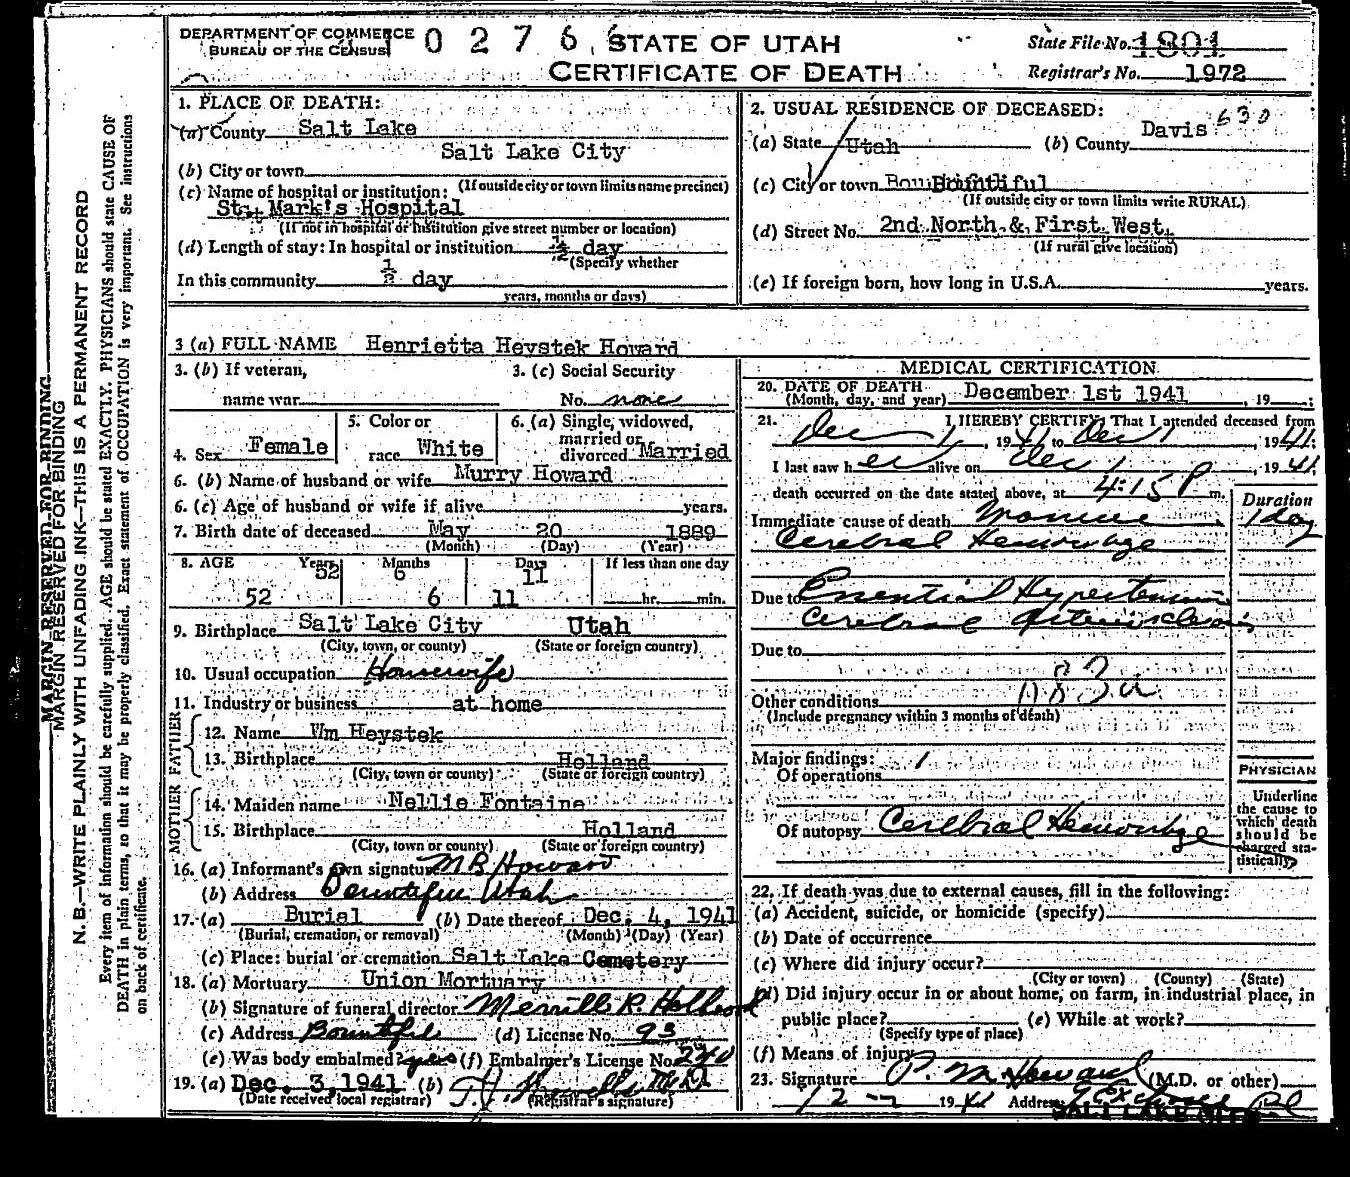 DEPARTMENT OF COMMERCE
BUREAU OF THE CENSUS
0 2 7 6
STATE OF UTAH
CERTIFICATE OF DEATH
State File No. 1801
Registrar's No. 1972
MARGIN RESERVED FOR BINDING
MARGIN RESERVED FOR BINDING
N. B.—WRITE PLAINLY WITH UNFADING INK—THIS IS A PERMANENT RECORD
Every item of information should be carefully supplied. AGE should be stated EXACTLY. PHYSICIANS should state CAUSE OF
DEATH in plain terms, so that it may be properly classified. Exact statement of OCCUPATION is very important. See instructions
on back of certificate.
1. PLACE OF DEATH:
(a) County Salt Lake
Salt Lake City
(b) City or town
(If outside city or town limits name precinct)
(c) Name of hospital or institution:
St. Mark's Hospital
(If not in hospital or institution give street number or location)
(d) Length of stay: In hospital or institution ½ day
(Specify whether
In this community ½ day
years, months or days)
2. USUAL RESIDENCE OF DECEASED:
(a) State Utah (b) County Davis 630
(c) City or town Bountiful
(If outside city or town limits write RURAL)
(d) Street No. 2nd North & First West.
(If rural give location)
(e) If foreign born, how long in U.S.A. years.
3 (a) FULL NAME Henrietta Heystek Howard
3. (b) If veteran,
name war
3. (c) Social Security
No. none
4. Sex Female
5. Color or
race White
6. (a) Single, widowed,
married or
divorced Married
6. (b) Name of husband or wife Murry Howard
6. (c) Age of husband or wife if alive years.
7. Birth date of deceased May 20 1889
(Month) (Day) (Year)
8. AGE Years Months Days If less than one day
52 6 11
52 6 11 hr. min.
9. Birthplace Salt Lake City Utah
(City, town, or county) (State or foreign country)
10. Usual occupation Housewife
11. Industry or business at home
FATHER
12. Name Wm Heystek
13. Birthplace Holland
(City, town or county) (State or foreign country)
MOTHER
14. Maiden name Nellie Fontaine
15. Birthplace Holland
(City, town or county) (State or foreign country)
16. (a) Informant's own signature M B Howard
(b) Address Bountiful Utah
17. (a) Burial (b) Date thereof Dec. 4, 1941
(Burial, cremation, or removal) (Month) (Day) (Year)
(c) Place: burial or cremation Salt Lake Cemetery
18. (a) Mortuary Union Mortuary
(b) Signature of funeral director Merrill R. Holbrook
(c) Address Bountiful (d) License No. 93
(e) Was body embalmed? yes (f) Embalmer's License No. 240
19. (a) Dec. 3, 1941 (b)
(Date received local registrar) (Registrar's signature)
MEDICAL CERTIFICATION
20. DATE OF DEATH
(Month, day, and year) December 1st 1941, 19 ;
21. I HEREBY CERTIFY, That I attended deceased from
Dec 1, 1941 to Dec 1 1941;
I last saw her alive on Dec 1, 1941
death occurred on the date stated above, at 4:15 P m.
Duration
Immediate cause of death 1 day
Cerebral Hemorrhage
Due to Essential Hypertension
Cerebral Arteriosclerosis
Due to
83a
Other conditions
(Include pregnancy within 3 months of death)
Major findings:
Of operations
Of autopsy Cerebral Hemorrhage
PHYSICIAN
Underline
the cause to
which death
should be
charged sta-
tistically
22. If death was due to external causes, fill in the following:
(a) Accident, suicide, or homicide (specify)
(b) Date of occurrence
(c) Where did injury occur?
(City or town) (County) (State)
(d) Did injury occur in or about home, on farm, in industrial place, in
public place? (e) While at work?
(Specify type of place)
(f) Means of injury
23. Signature P. M. Howard (M.D. or other)
12-2 1941 Address
SALT LAKE CITY